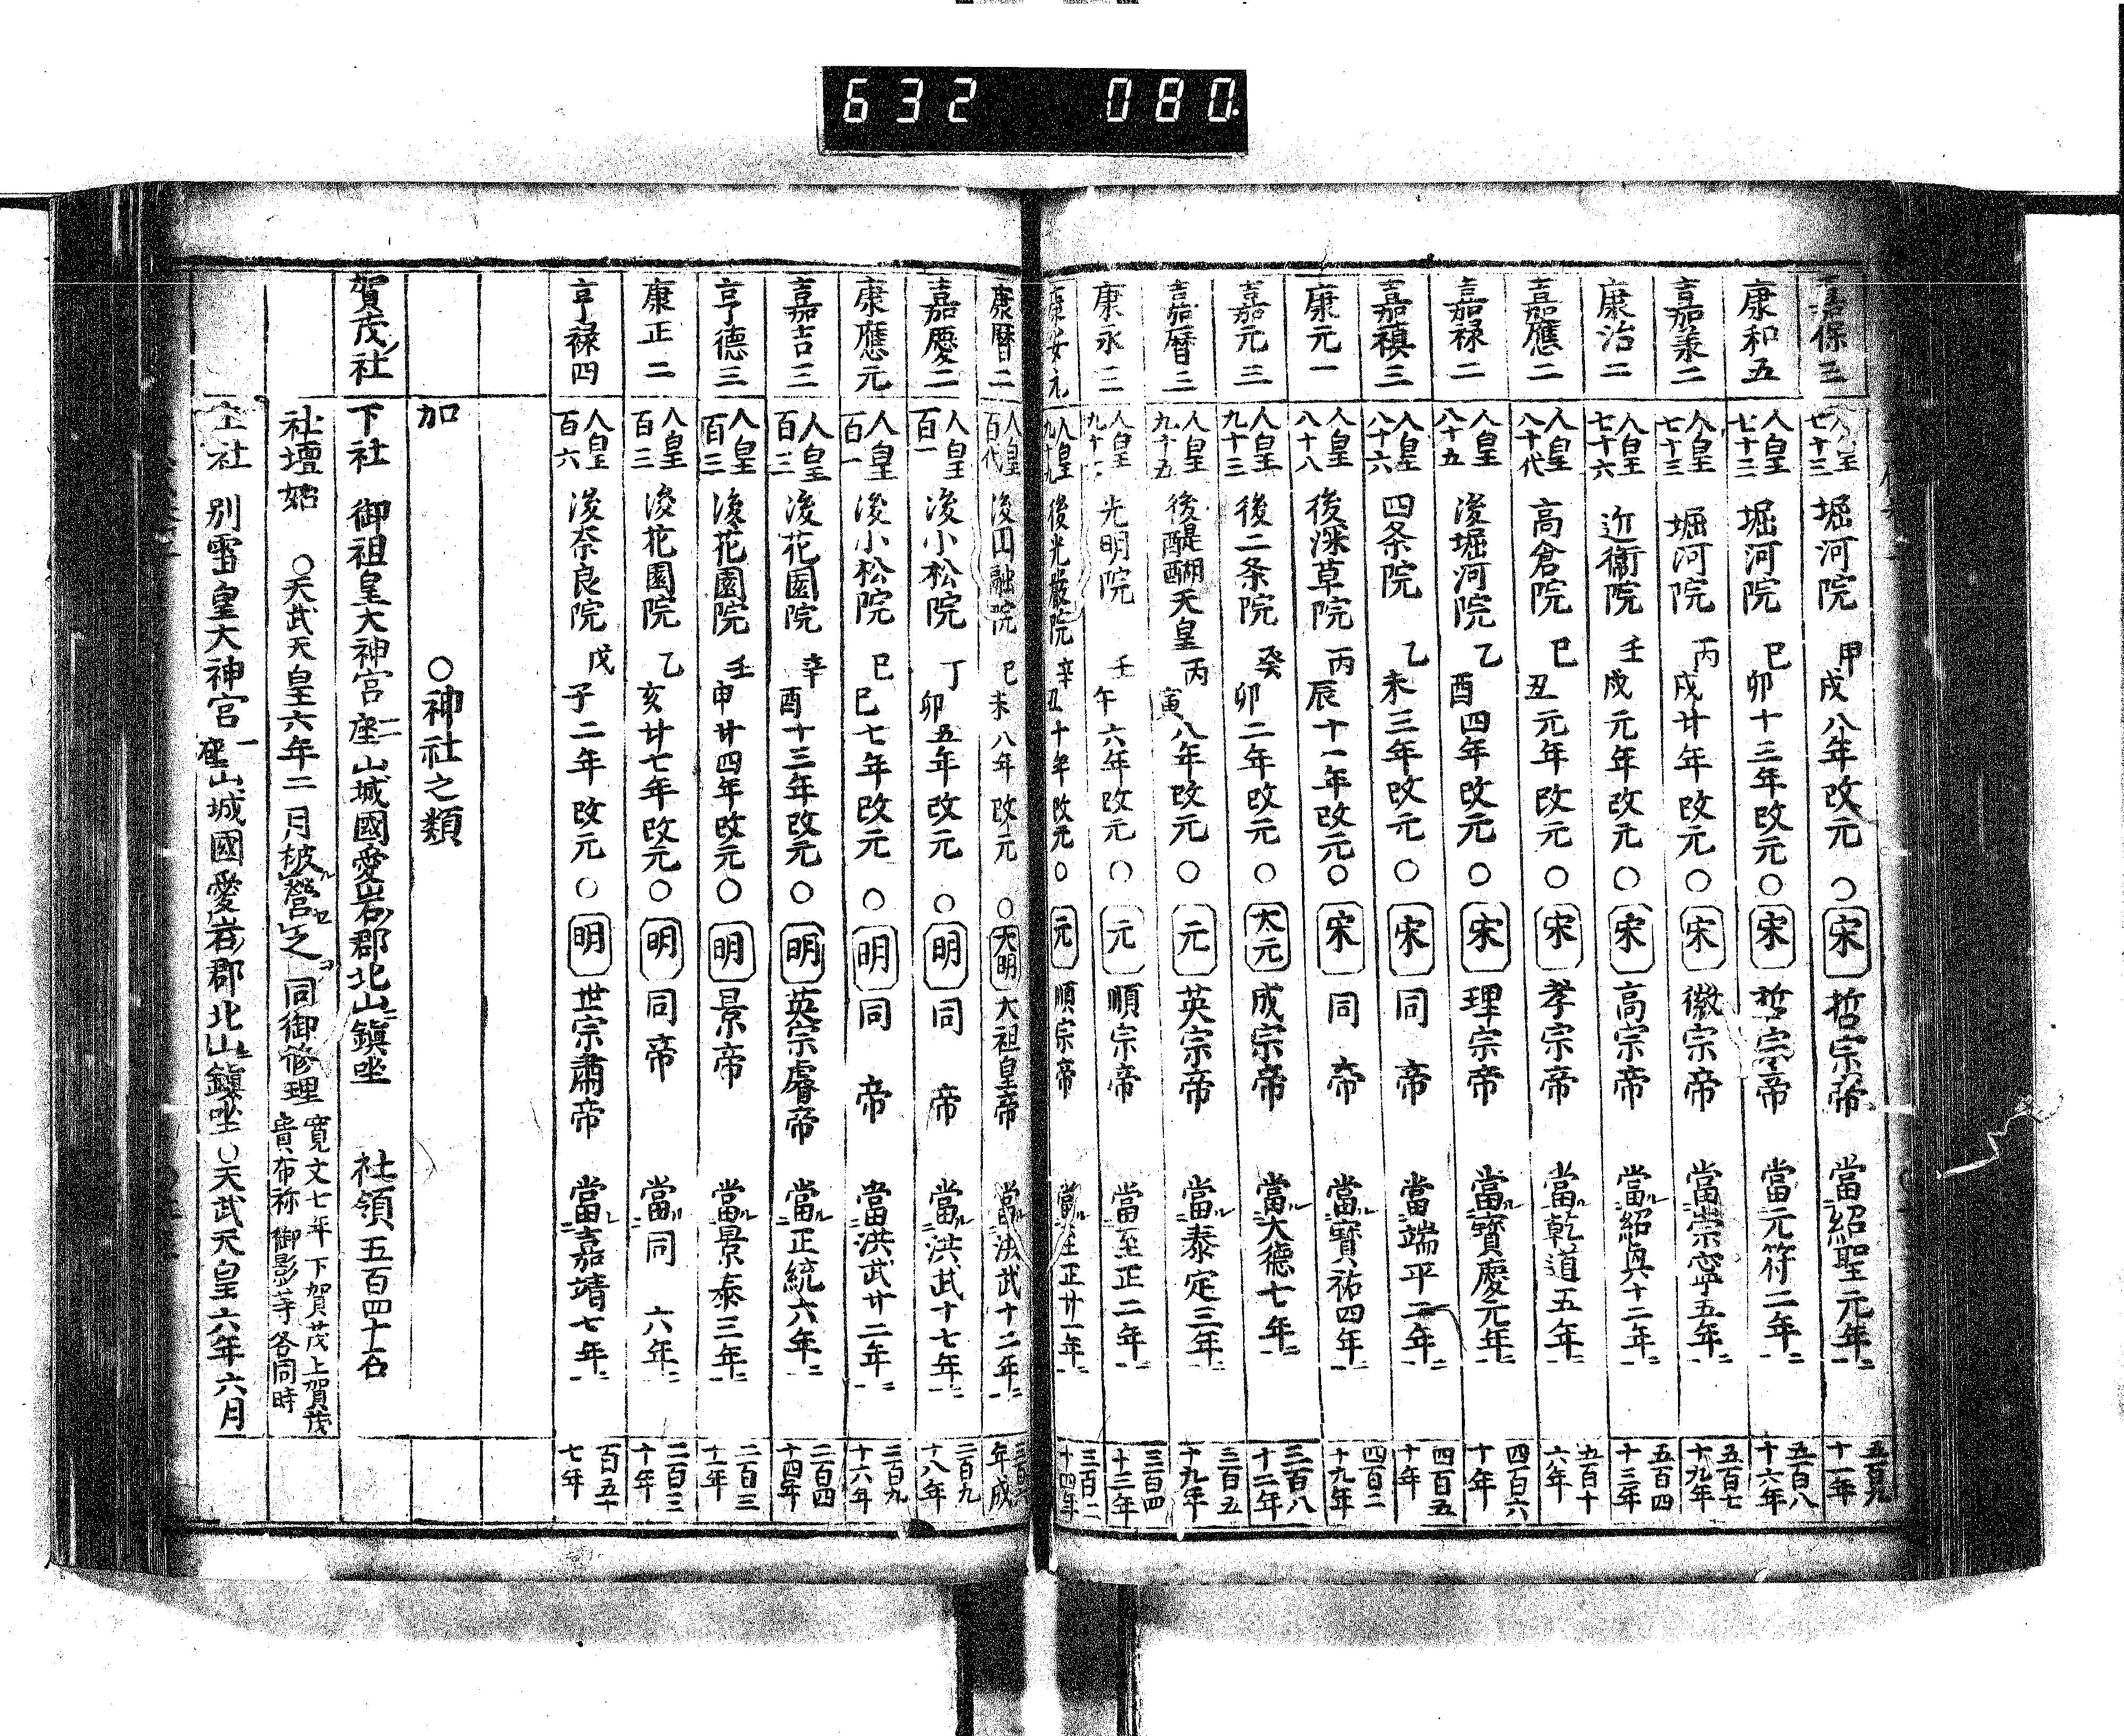 632 080.
嘉保三 人皇七十三 堀河院 甲戌八年改元○宋 哲宗帝 當紹聖元年ニ 五百九十一年
康和五 人皇七十三 堀河院 己卯十三年改元○宋 哲宗帝 當元符二年ニ 五百八十六年
嘉兼二 人皇七十三 堀河院 丙戌廿年改元○宋 徽宗帝 當崇寧五年ニ 五百七十九年
康治二 人皇七十六 近衞院 壬戌元年改元○宋 高宗帝 當ル紹興十二年ニ 五百四十三年
嘉應二 人皇八十代 高倉院 己丑元年改元○宋 孝宗帝 當ル乾道五年ニ 五百十六年
嘉禄二 人皇八十五 後堀河院 乙酉四年改元○宋 理宗帝 當ル寶慶元年ニ 四百六十年
嘉禎三 人皇八十六 四条院 乙未三年改元○宋 同帝 當ル端平二年ニ 四百五十年
康元一 人皇八十八 後深草院 丙辰十一年改元○宋 同帝 當ル寶祐四年ニ 四百二十九年
嘉元三 人皇九十三 後二条院 癸卯二年改元○大元 成宗帝 當ル大德七年ニ 三百八十二年
嘉暦三 人皇九十五 後醍醐天皇 丙寅八年改元○元 英宗帝 當ル泰定三年ニ 三百五十九年
康永三 人皇九十 光明院 壬午六年改元○元 順宗帝 當至正二年ニ 三百四十三年
康安元 人皇九十九 後光嚴院 辛丑十年改元○元 順宗帝 當ル至正廿一年ニ 三百二十四年
康暦二 人皇百代 後圓融院 己未八年改元○大明 大祖皇帝 當ル洪武十二年ニ
嘉慶二 人皇百一 後小松院 丁卯五年改元○明 同帝 當ル洪武十七年ニ 二百九十八年
康應元 人皇百一 後小松院 己巳七年改元○明 同帝 當洪武廿二年ニ 二百九十六年
嘉吉三 人皇百三 後花園院 辛酉十三年改元○明 英宗睿帝 當ル正統六年ニ 二百四十四年
亨德三 人皇百三 後花園院 壬申廿四年改元○明 景帝 當ル景泰三年ニ 二百三十二年
康正二 人皇百三 後花園院 乙亥廿七年改元○明 同帝 當ル同六年ニ 二百三十年
亨禄四 人皇百六 後奈良院 戊子二年改元○明 世宗肅帝 當ル嘉靖七年ニ 百五十七年
加 ○神社之類
賀茂社 下社 御祖皇大神宮二座 山城國愛宕郡北山ニ鎮坐 社領五百四十一石
社壇始 ○天武天皇六年二月 營之 同御修理 寛文七年下賀茂上賀茂貴布祢御影等各同時
上社 別雷皇大神宮一座 山城國愛宕郡北山ニ鎮坐○天武天皇六年六月